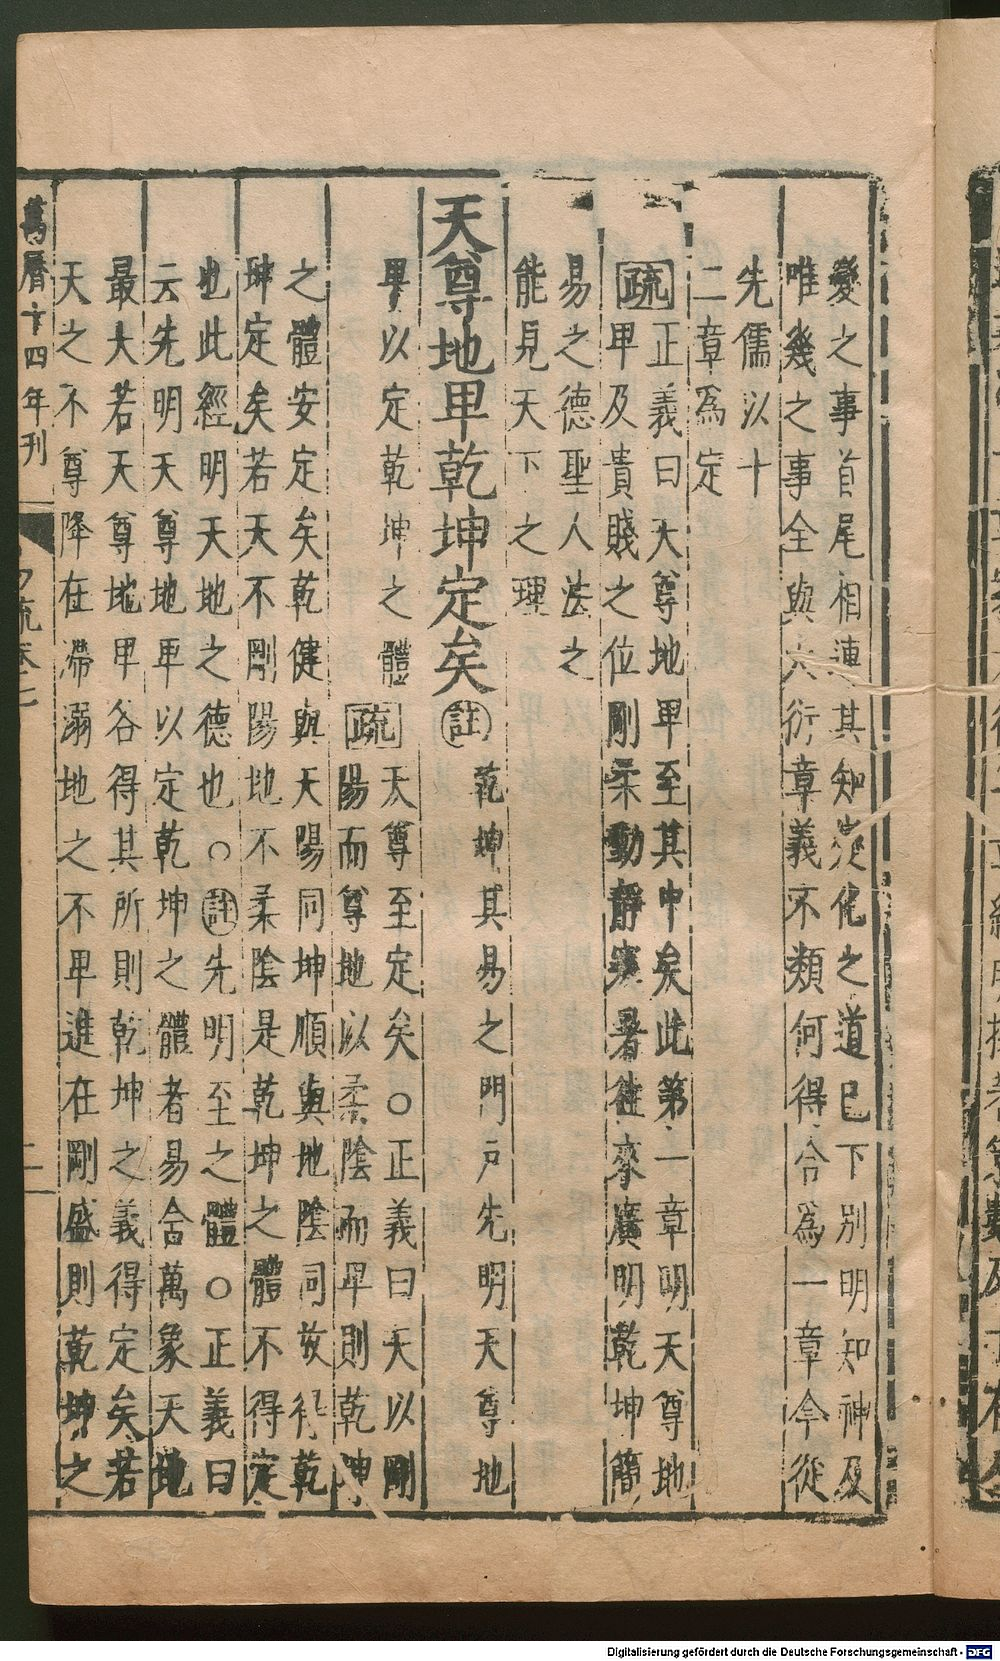 變之事首尾相連其知變化之道已下別明知神及
唯幾之事全與大衍章義不類何得合為一章今從
先儒以十
二章為定
疏正義曰天尊地卑至其中矣此第一章明天尊地
卑及貴賤之位剛柔動靜寒暑往來廣明乾坤簡
易之德聖人法之
能見天下之理
天尊地卑乾坤定矣
註乾坤其易之門戶先明天尊地
卑以定乾坤之體
疏天尊至定矣○正義曰天以剛
陽而尊地以柔陰而卑則乾坤
之體安定矣乾健與天陽同坤順與地陰同故得乾
坤定矣若天不剛陽地不柔陰是乾坤之體不得定
也此經明天地之德也○註先明至之體○正義曰
云先明天尊地卑以定乾坤之體者易含萬象天地
最大若天尊地卑各得其所則乾坤之義得定矣若
天之不尊降在滯溺地之不卑進在剛盛則乾坤之
萬曆十四年刊
易疏卷七
二
Digitalisierung gefördert durch die Deutsche Forschungsgemeinschaft - DFG